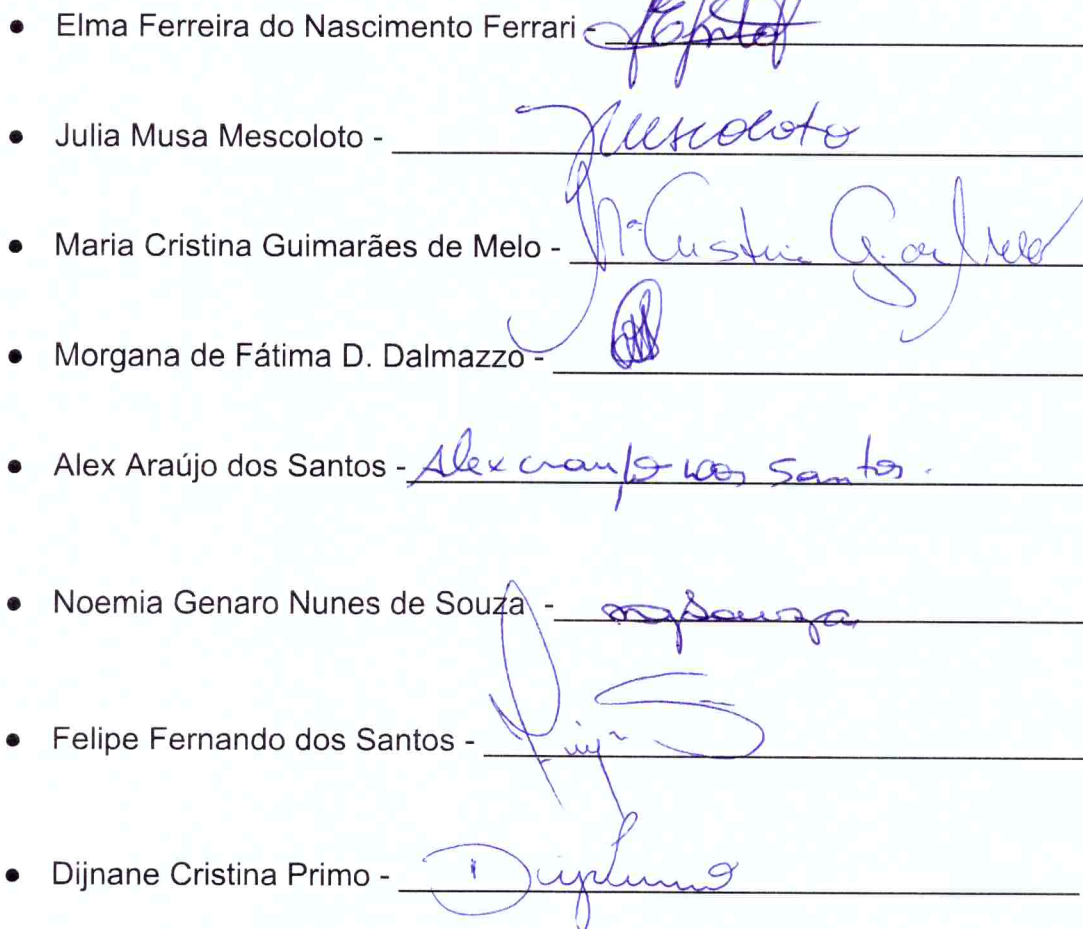 • Elma Ferreira do Nascimento Ferrari -
• Julia Musa Mescoloto - Mescoloto
• Maria Cristina Guimarães de Melo - Mª Cristina G. de Melo
• Morgana de Fátima D. Dalmazzo -
• Alex Araújo dos Santos - Alex araujo dos Santos.
• Noemia Genaro Nunes de Souza - ngsouza
• Felipe Fernando dos Santos -
• Dijnane Cristina Primo -